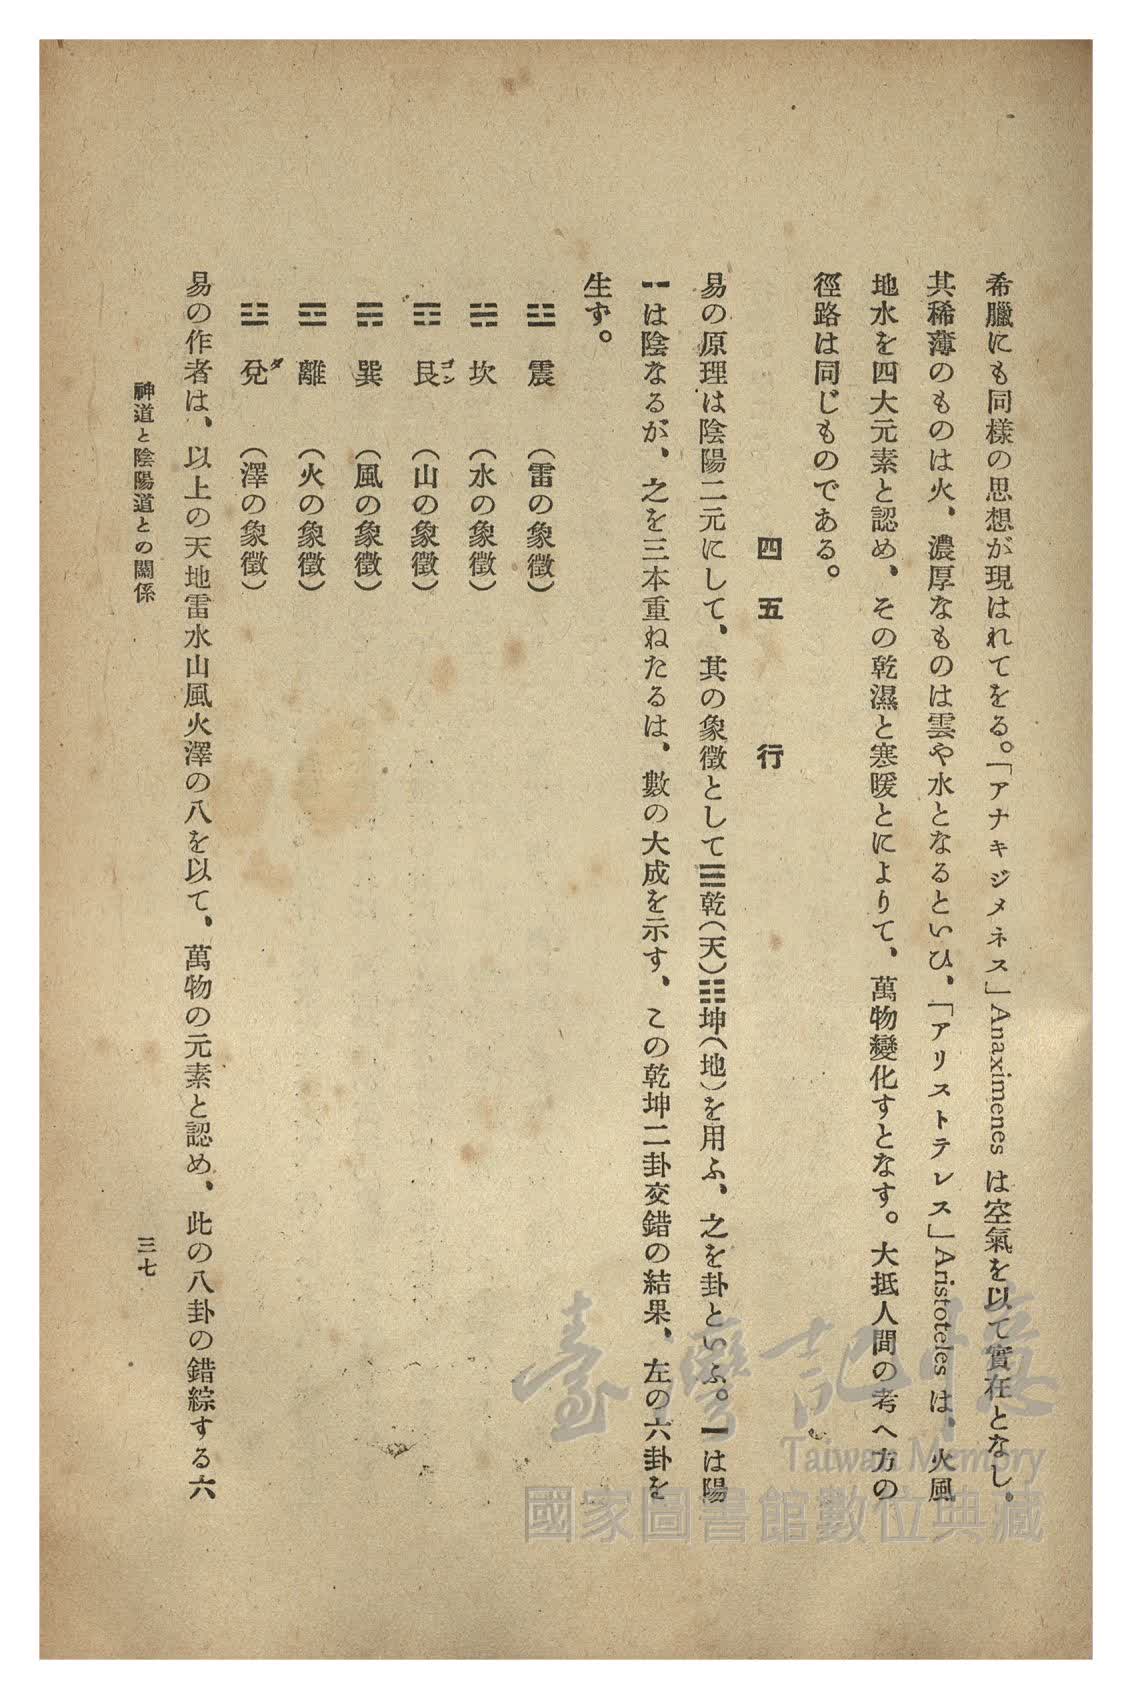 希臘にも同樣の思想が現はれてをる。「アナキジメネス」Anaximenes は空氣を以て實在となし、
其稀薄のものは火、濃厚なものは雲や水となるといひ、「アリストテレス」Aristoteles は、火風
地水を四大元素と認め、その乾濕と寒暖とによりて、萬物變化すとなす。大抵人間の考へ方の
徑路は同じものである。
四 五 行
易の原理は陰陽二元にして、其の象徵として☰乾(天)☷坤(地)を用ふ、之を卦といふ。⚊は陽
⚋は陰なるが、之を三本重ねたるは、數の大成を示す、この乾坤二卦交錯の結果、左の六卦を
生ず。
☳ 震 (雷の象徵)
☵ 坎 (水の象徵)
☶ 艮ゴン (山の象徵)
☴ 巽 (風の象徵)
☲ 離 (火の象徵)
☱ 兌ダ (澤の象徵)
易の作者は、以上の天地雷水山風火澤の八を以て、萬物の元素と認め、此の八卦の錯綜する六
神道と陰陽道との關係
三七
臺灣記憶
Taiwan Memory
國家圖書館數位典藏